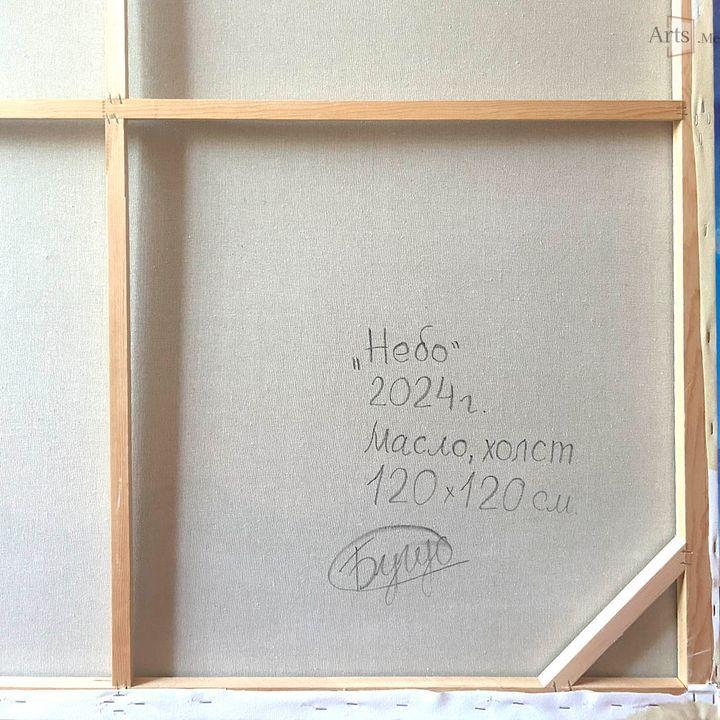 Arts .Me
„Небо“
2024г.
Масло, холст
120х120 см.